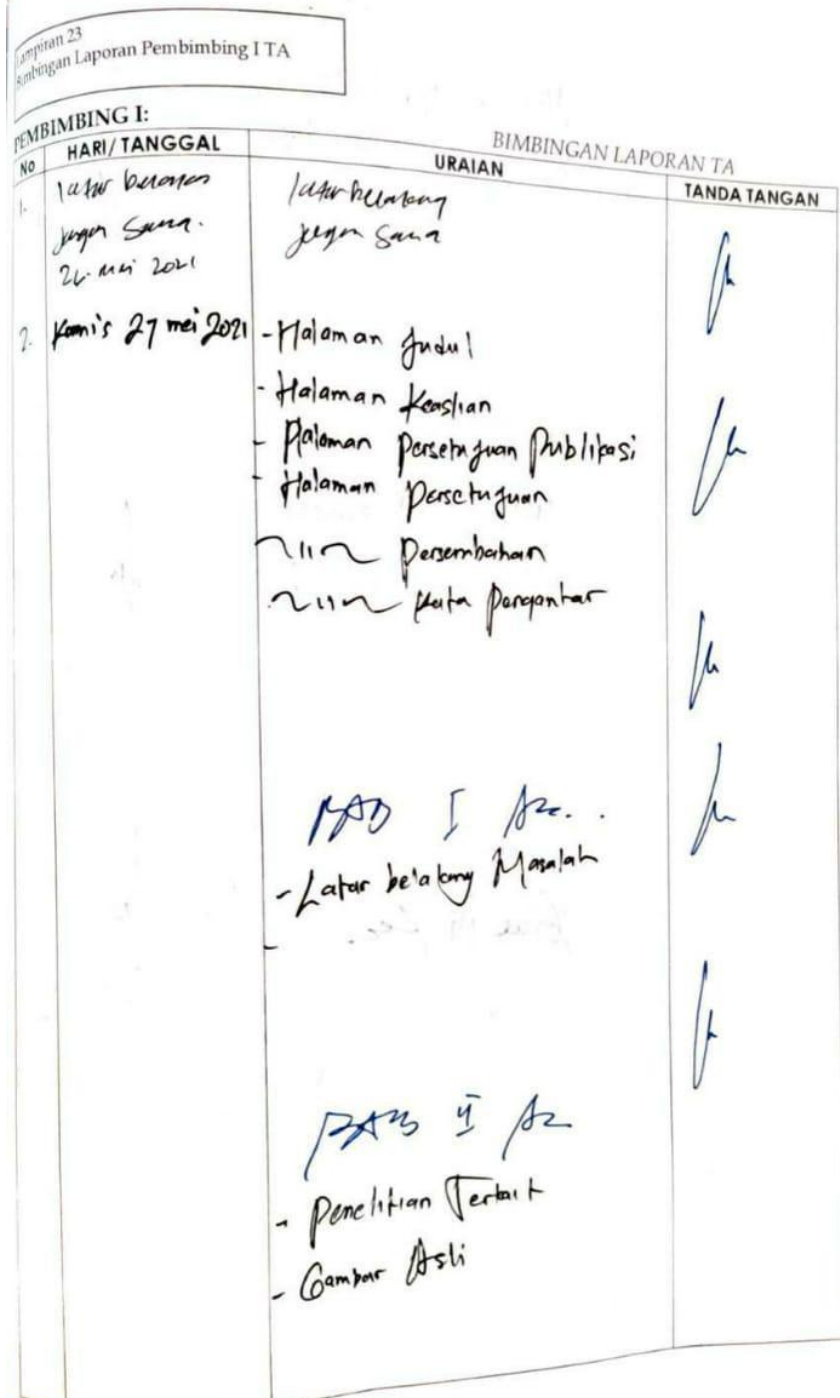 Lampiran 23
Bimbingan Laporan Pembimbing I TA
PEMBIMBING I:
BIMBINGAN LAPORAN TA
No HARI/ TANGGAL URAIAN TANDA TANGAN
1. latar latar belakang
Sama. Sama
mei 2021
2. Kamis 27 mei 2021 - Halaman Judul
- Halaman Keaslian
- Halaman Persetujuan Publikasi
- Halaman Persetujuan
~ 11 ~ Persembahan
~ 11 ~ Kata Pengantar
BAB I Acc..
- Latar belakang Masalah
-
BAB II Acc
- Penelitian Terkait
- Gambar Asli